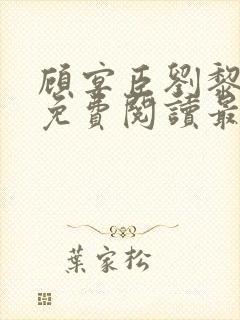 顧宴臣劉黎
免費閱讀最
葉家松